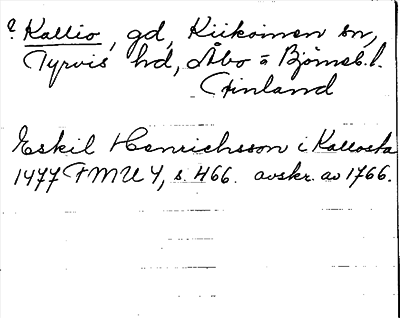 ? Kallio, gd, Kiikoinen sn,
Tyrvis hd, Åbo o Björneb. l.
Finland
Eskil Henrichsson i Kallosta
1477 FMU 4, s. 466. avskr. av 1766.